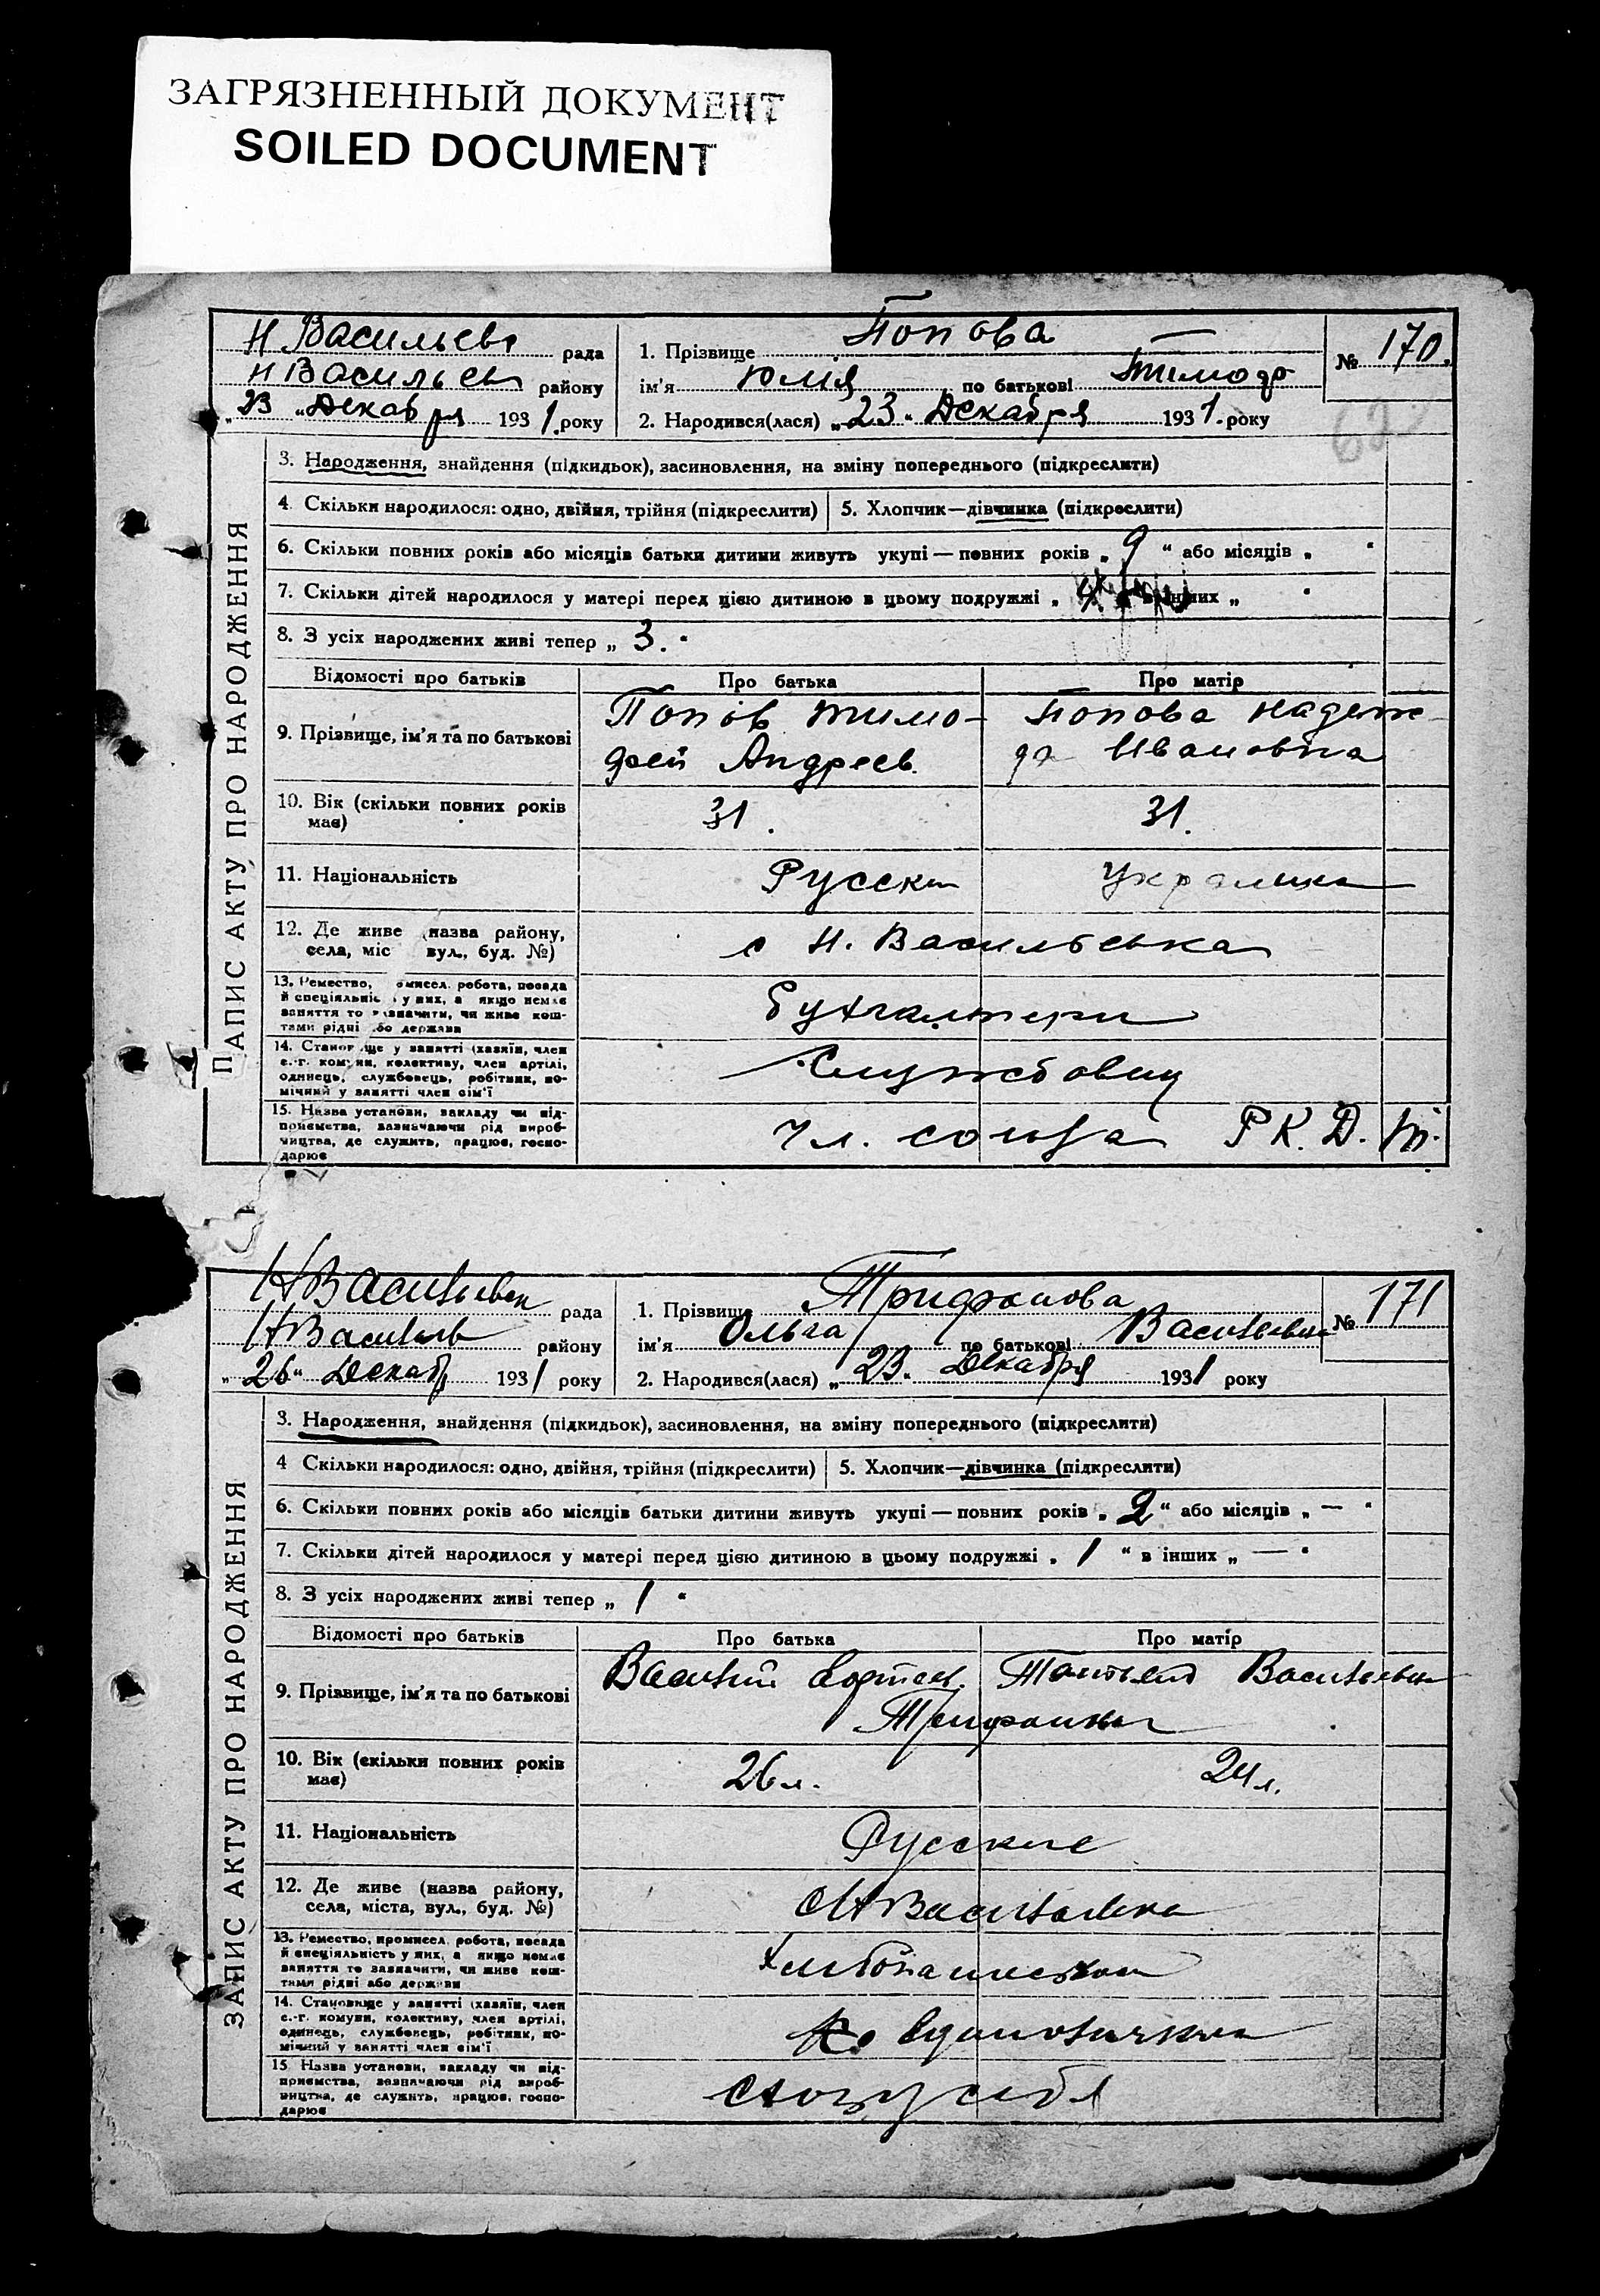 ЗАГРЯЗНЕННЫЙ ДОКУМЕНТ
SOILED DOCUMENT
Н Васильевс рада
Н Васильев району
„ 23 „ Декабря 1931. року
1. Прізвище Попова
ім'я Юлія по батькові Тимоф
2. Народився(лася) „ 23 „ Декабря 1931. року
№ 170.
62
ЗАПИС АКТУ ПРО НАРОДЖЕННЯ
3. Народження, знайдення (підкидьок), засиновлення, на зміну попереднього (підкреслити)
4. Скільки народилося: одно, двійня, трійня (підкреслити)
5. Хлопчик—дівчинка (підкреслити)
6. Скільки повних років або місяців батьки дитини живуть укупі — повних років „ 9 “ або місяців „ “
7. Скільки дітей народилося у матері перед цією дитиною в цьому подружжі „ 4 в інших „ “
8. З усіх народжених живі тепер „ 3.
Відомості про батьків
Про батька
Про матір
9. Прізвище, ім'я та по батькові
Попов Тимо-
фей Андреев.
Попова Надеж-
да Ивановна
10. Вік (скільки повних років має)
31.
31.
11. Національність
Русски
Украинка
12. Де живе (назва району,
села, міс вул., буд. №)
с Н. Васильевка
13. Ремество, промисел, робота, посада
й спеціяльніс у них, а якщо немає
заняття то зазначити, чи живе кош-
тами рідні або держави
Бухгалтери
14. Становище у занятті (хазяїн, член
с.-г. комуни, колективу, член артілі,
одинець, службовець, робітник, по-
мічний у занятті член сім'ї
Службовец
15. Назва установи, закладу чи під-
приємства, зазначаючи рід вироб-
ництва, де служить, працює, госпо-
дарює
чл. союза Р К. Д. Т.
Н Васильевск рада
Н Василев району
„ 26 „ Декаб 1931 року
1. Прізвище Трифонова
ім'я Ольга по батькові Васильевна
2. Народився(лася) „ 23. Декабря 1931 року
№ 171
ЗАПИС АКТУ ПРО НАРОДЖЕННЯ
3. Народження, знайдення (підкидьок), засиновлення, на зміну попереднього (підкреслити)
4 Скільки народилося: одно, двійня, трійня (підкреслити)
5. Хлопчик—дівчинка (підкреслити)
6. Скільки повних років або місяців батьки дитини живуть укупі — повних років „ 2 “ або місяців „ — “
7. Скільки дітей народилося у матері перед цією дитиною в цьому подружжі „ 1 “ в інших „ — “
8. З усіх народжених живі тепер „ 1 “
Відомості про батьків
Про батька
Про матір
9. Прізвище, ім'я та по батькові
Василий
Васильевн
10. Вік (скільки повних років має)
26 л.
24 л.
11. Національність
Русские
12. Де живе (назва району,
села, міста, вул., буд. №)
с Н Васильевка
13. Ремество, промисел, робота, посада
й спеціяльність у них, а якщо немає
заняття то зазначити, чи живе кош-
тами рідні або держави
14. Становище у занятті (хазяїн, член
с.-г. комуни, колективу, член артілі,
одинець, службовець, робітник, по-
мічний у занятті член сім'ї
15. Назва установи, закладу чи під-
приємства, зазначаючи рід вироб-
ництва, де служить, працює, госпо-
дарює